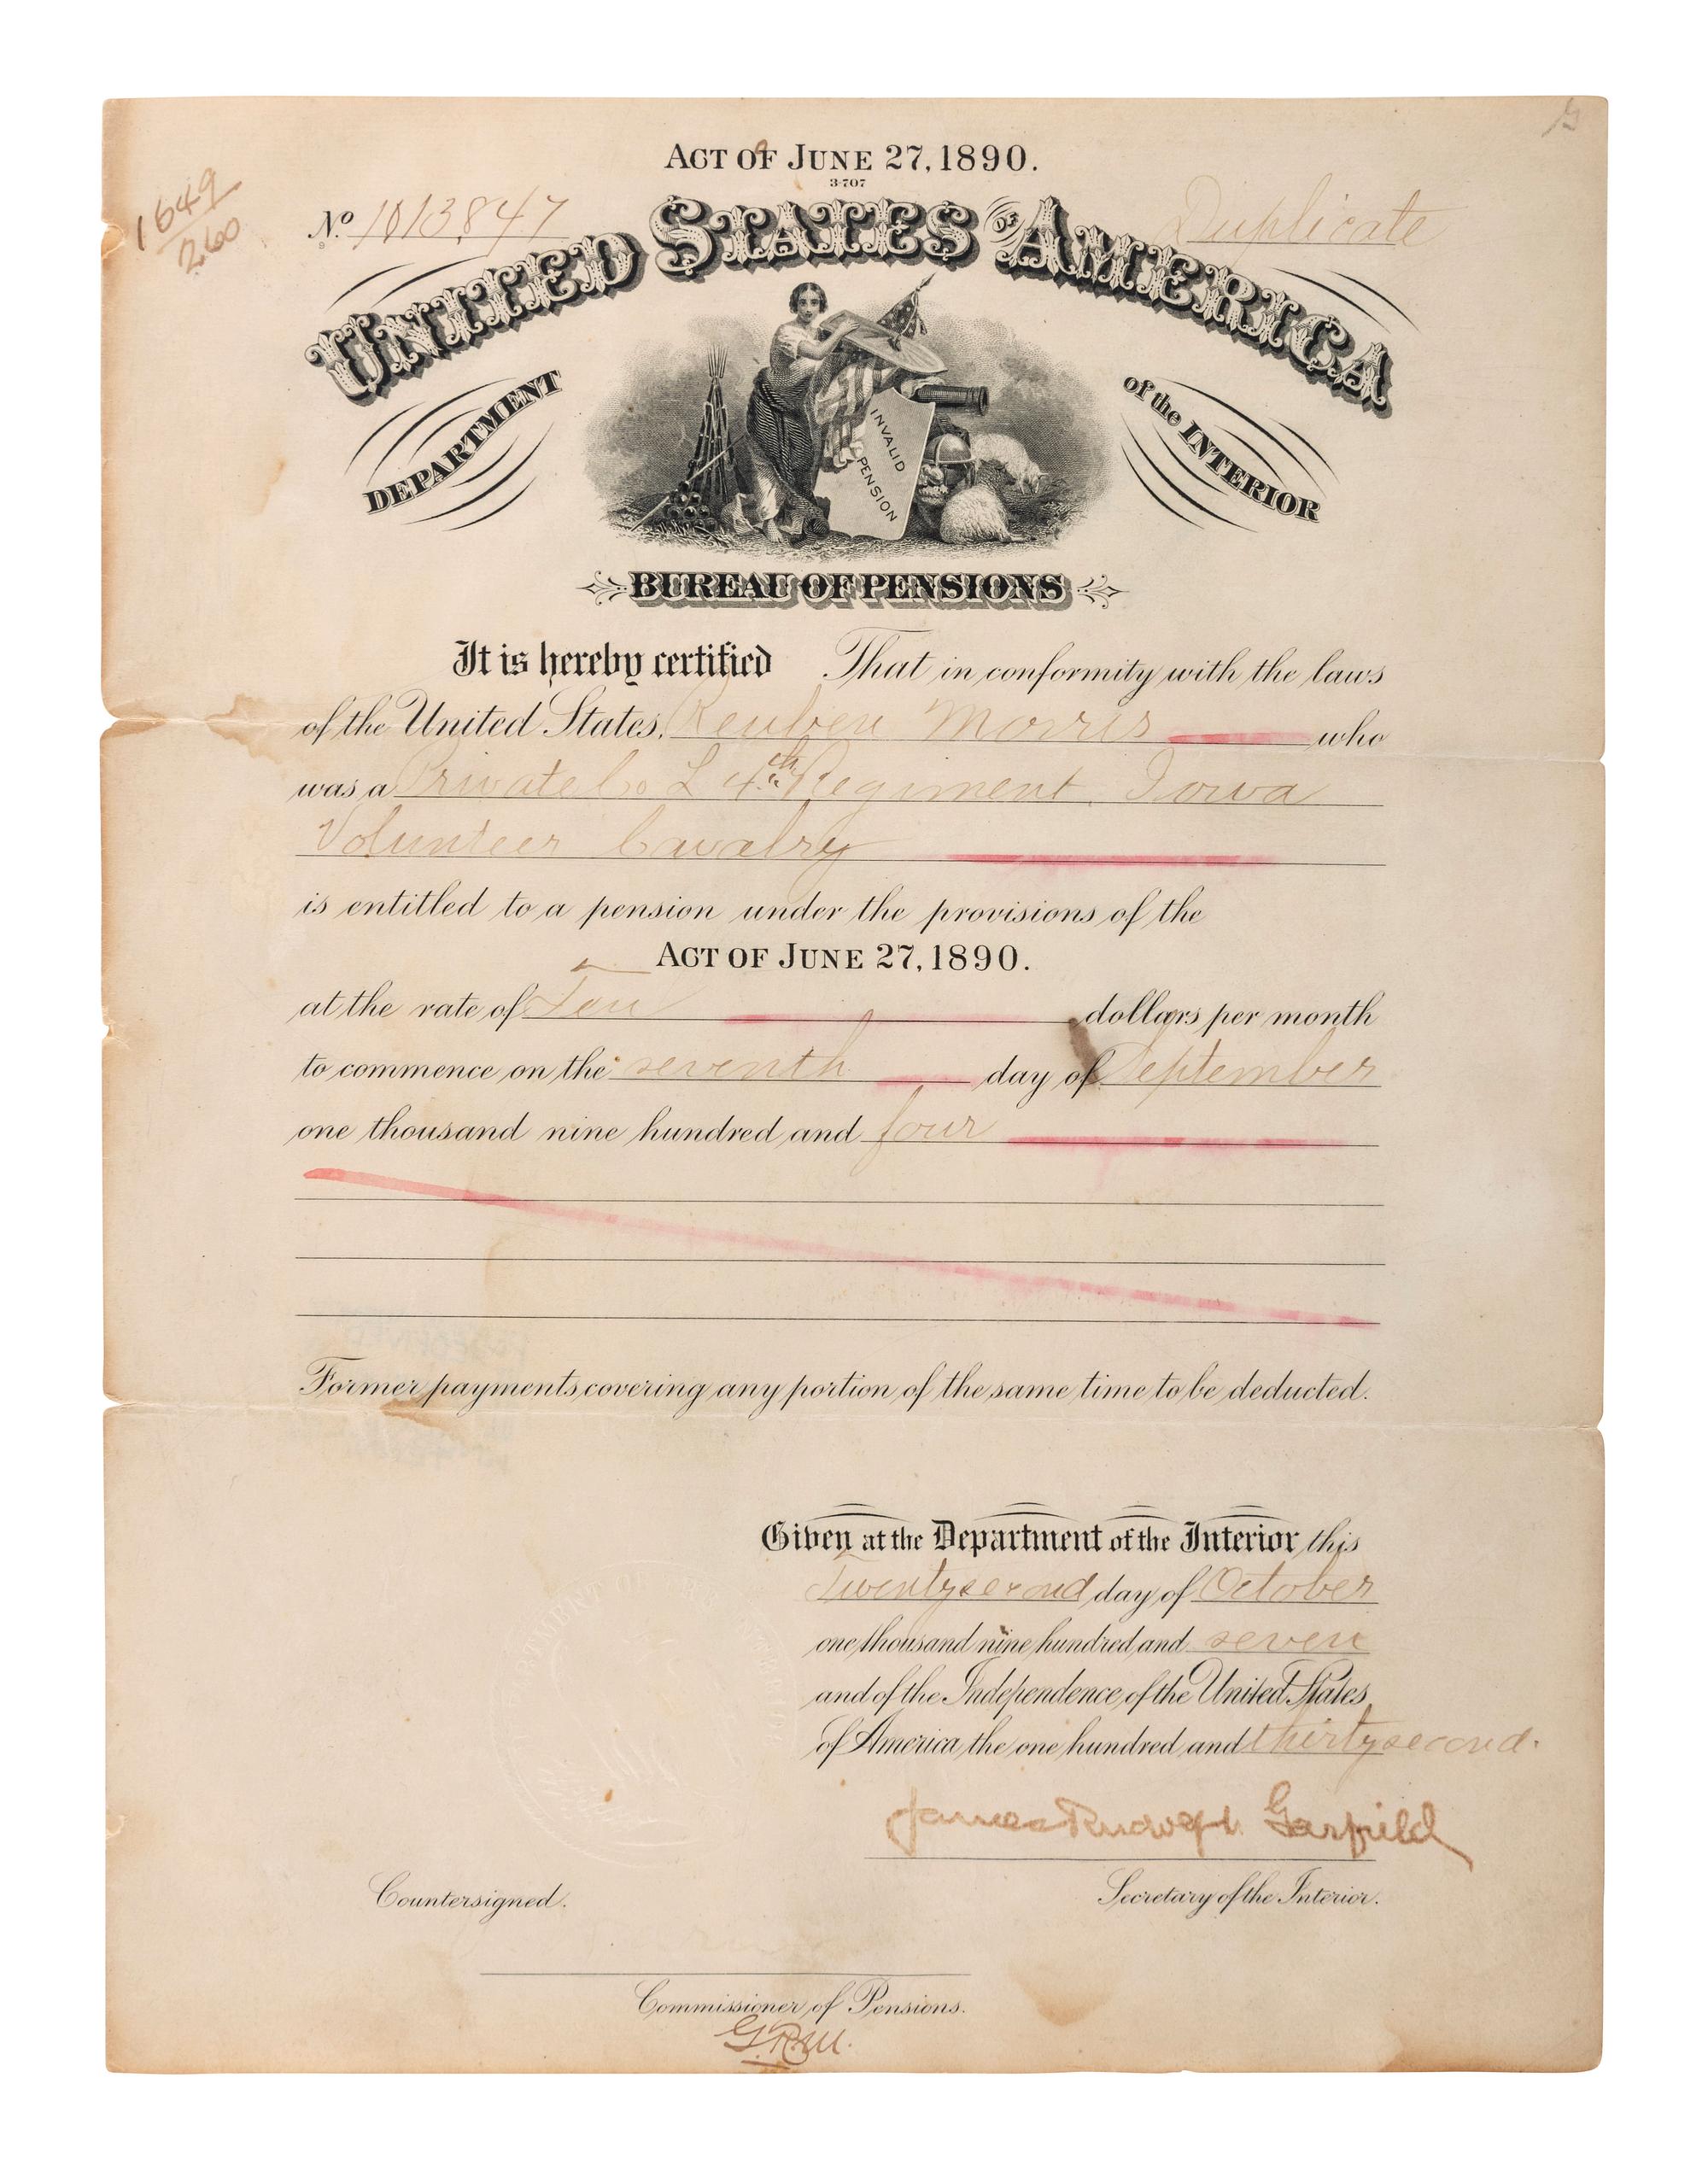 ACT OF JUNE 27, 1890.
3-707
1649
260
No. 1013,847
Duplicate
UNITED STATES OF AMERICA
DEPARTMENT of the INTERIOR
INVALID
PENSION
BUREAU OF PENSIONS
It is hereby certified That in conformity with the laws
of the United States, Reuben Morris who
was a Private Co L 4th Regiment Iowa
Volunteer Cavalry
is entitled to a pension under the provisions of the
ACT OF JUNE 27, 1890.
at the rate of Ten dollars per month
to commence on the seventh day of September
one thousand nine hundred and four
Former payments covering any portion of the same time to be deducted.
Given at the Department of the Interior this
Twenty second day of October
one thousand nine hundred and seven
and of the Independence of the United States
of America the one hundred and thirty second.
James Rudolph Garfield
Countersigned.
Secretary of the Interior.
Commissioner of Pensions.
G.R.M.